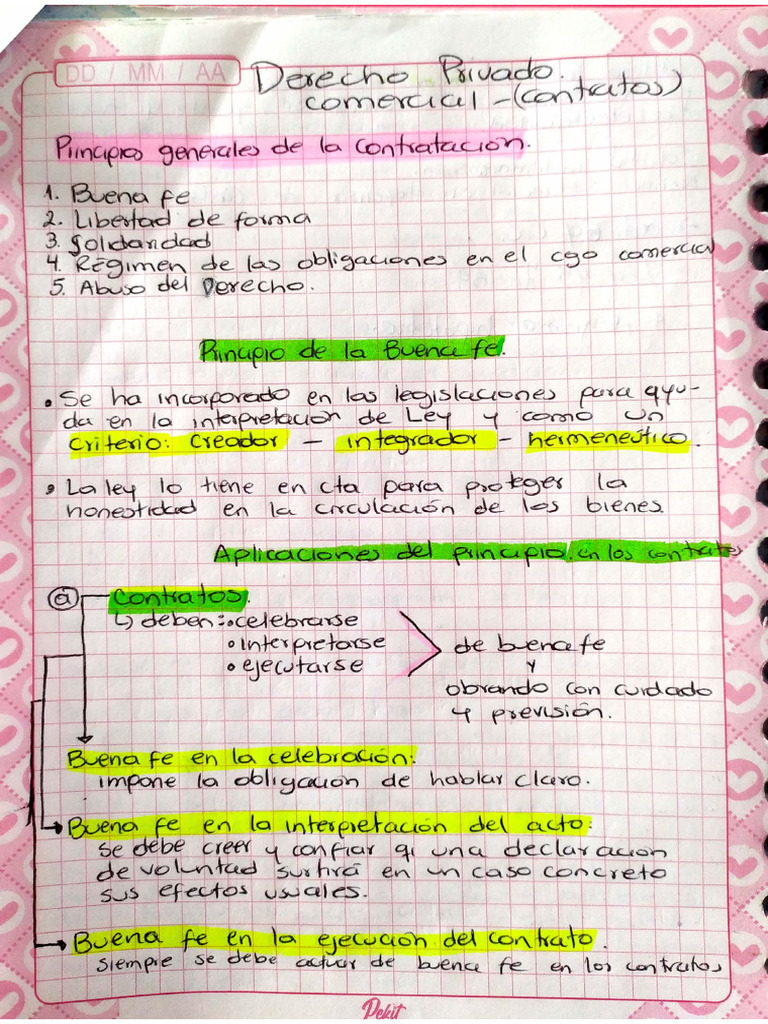 DD / MM / AA
Derecho Privado.
comercial - (contratos)
Principios generales de la contratación.
1. Buena fe
2. Libertad de forma
3. Solidaridad
4. Régimen de las obligaciones en el cgo comercial
5. Abuso del Derecho.
Principio de la Buena fe.
• Se ha incorporado en las legislaciones para ayu-
da en la interpretación de Ley y como un
criterio: Creador - integrador - hermeneútico.
• La ley lo tiene en cta para proteger la
honestidad en la circulación de los bienes.
Aplicaciones del principio en los contratos
a contratos.
↳ deben: • celebrarse
• interpretarse
• ejecutarse
de buena fe
y
obrando con cuidado
y previsión.
Buena fe en la celebración:
impone la obligación de hablar claro.
Buena fe en la interpretación del acto:
se debe creer y confiar qi una declaración
de voluntad surtirá en un caso concreto
sus efectos usuales.
Buena fe en la ejecución del contrato.
siempre se debe actuar de buena fe en los contratos
Pekit